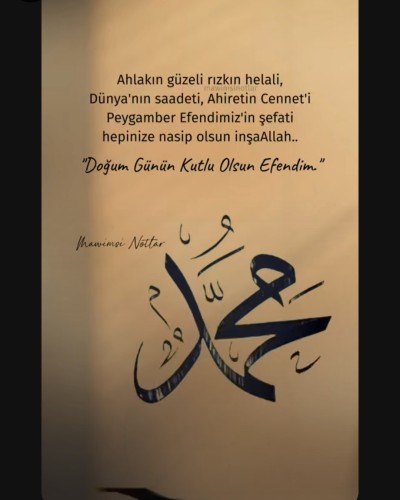 Ahlakın güzeli rızkın helali,
mawimsinotlar
Dünya'nın saadeti, Ahiretin Cennet'i
Peygamber Efendimiz'in şefati
hepinize nasip olsun inşaAllah..
"Doğum Günün Kutlu Olsun Efendim."
Mawimsi Notlar
محمد